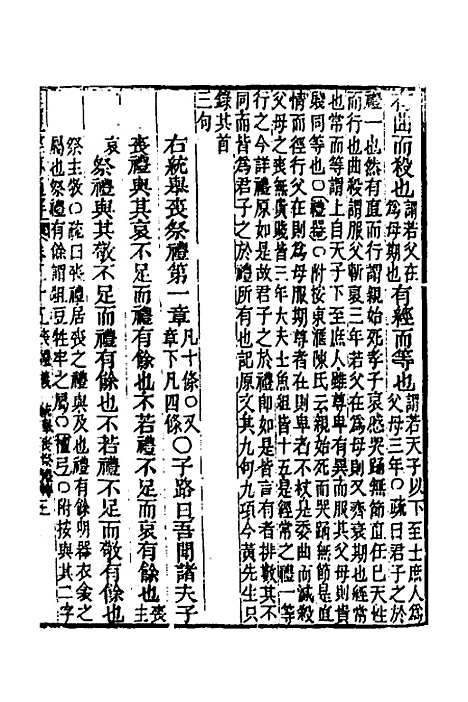 有曲而殺也謂若父在
為母期也有經而等也謂若天子以下至士庶人為
父母三年〇疏曰君子之於
禮一也然有直而行謂親始死孝子哀感哭踊無節直任己天性
而行也曲殺謂服父斬衰三年若父在為母則又齊衰期也經常
也常而等謂上自天子下至庶人雖尊卑有異而服其父母則貴
賤同等也〇禮器〇附按東滙陳氏云親始死而哭踊無節是直
情而徑行父在則為母服期尊者在則卑者不杖是委曲而減殺
父母之喪無貴賤皆三年大夫士魚俎皆十五是經常之禮一等
行之今詳禮原如是故君子之於禮即如是皆言有者排數其不
同而皆為君子之於禮所有也記原文其九句九項今黃先生只
錄其首
三句
右統舉喪祭禮第一章凡十條〇又
章下凡四條〇子路曰吾聞諸夫子
喪禮與其哀不足而禮有餘也不若禮不足而哀有餘也喪
主
哀祭禮與其敬不足而禮有餘也不若禮不足而敬有餘也
祭主敬〇疏曰喪禮居喪之禮與及也禮有餘明器衣衾之
屬也祭禮有餘謂俎豆牲牢之屬〇檀弓〇附按與其二字